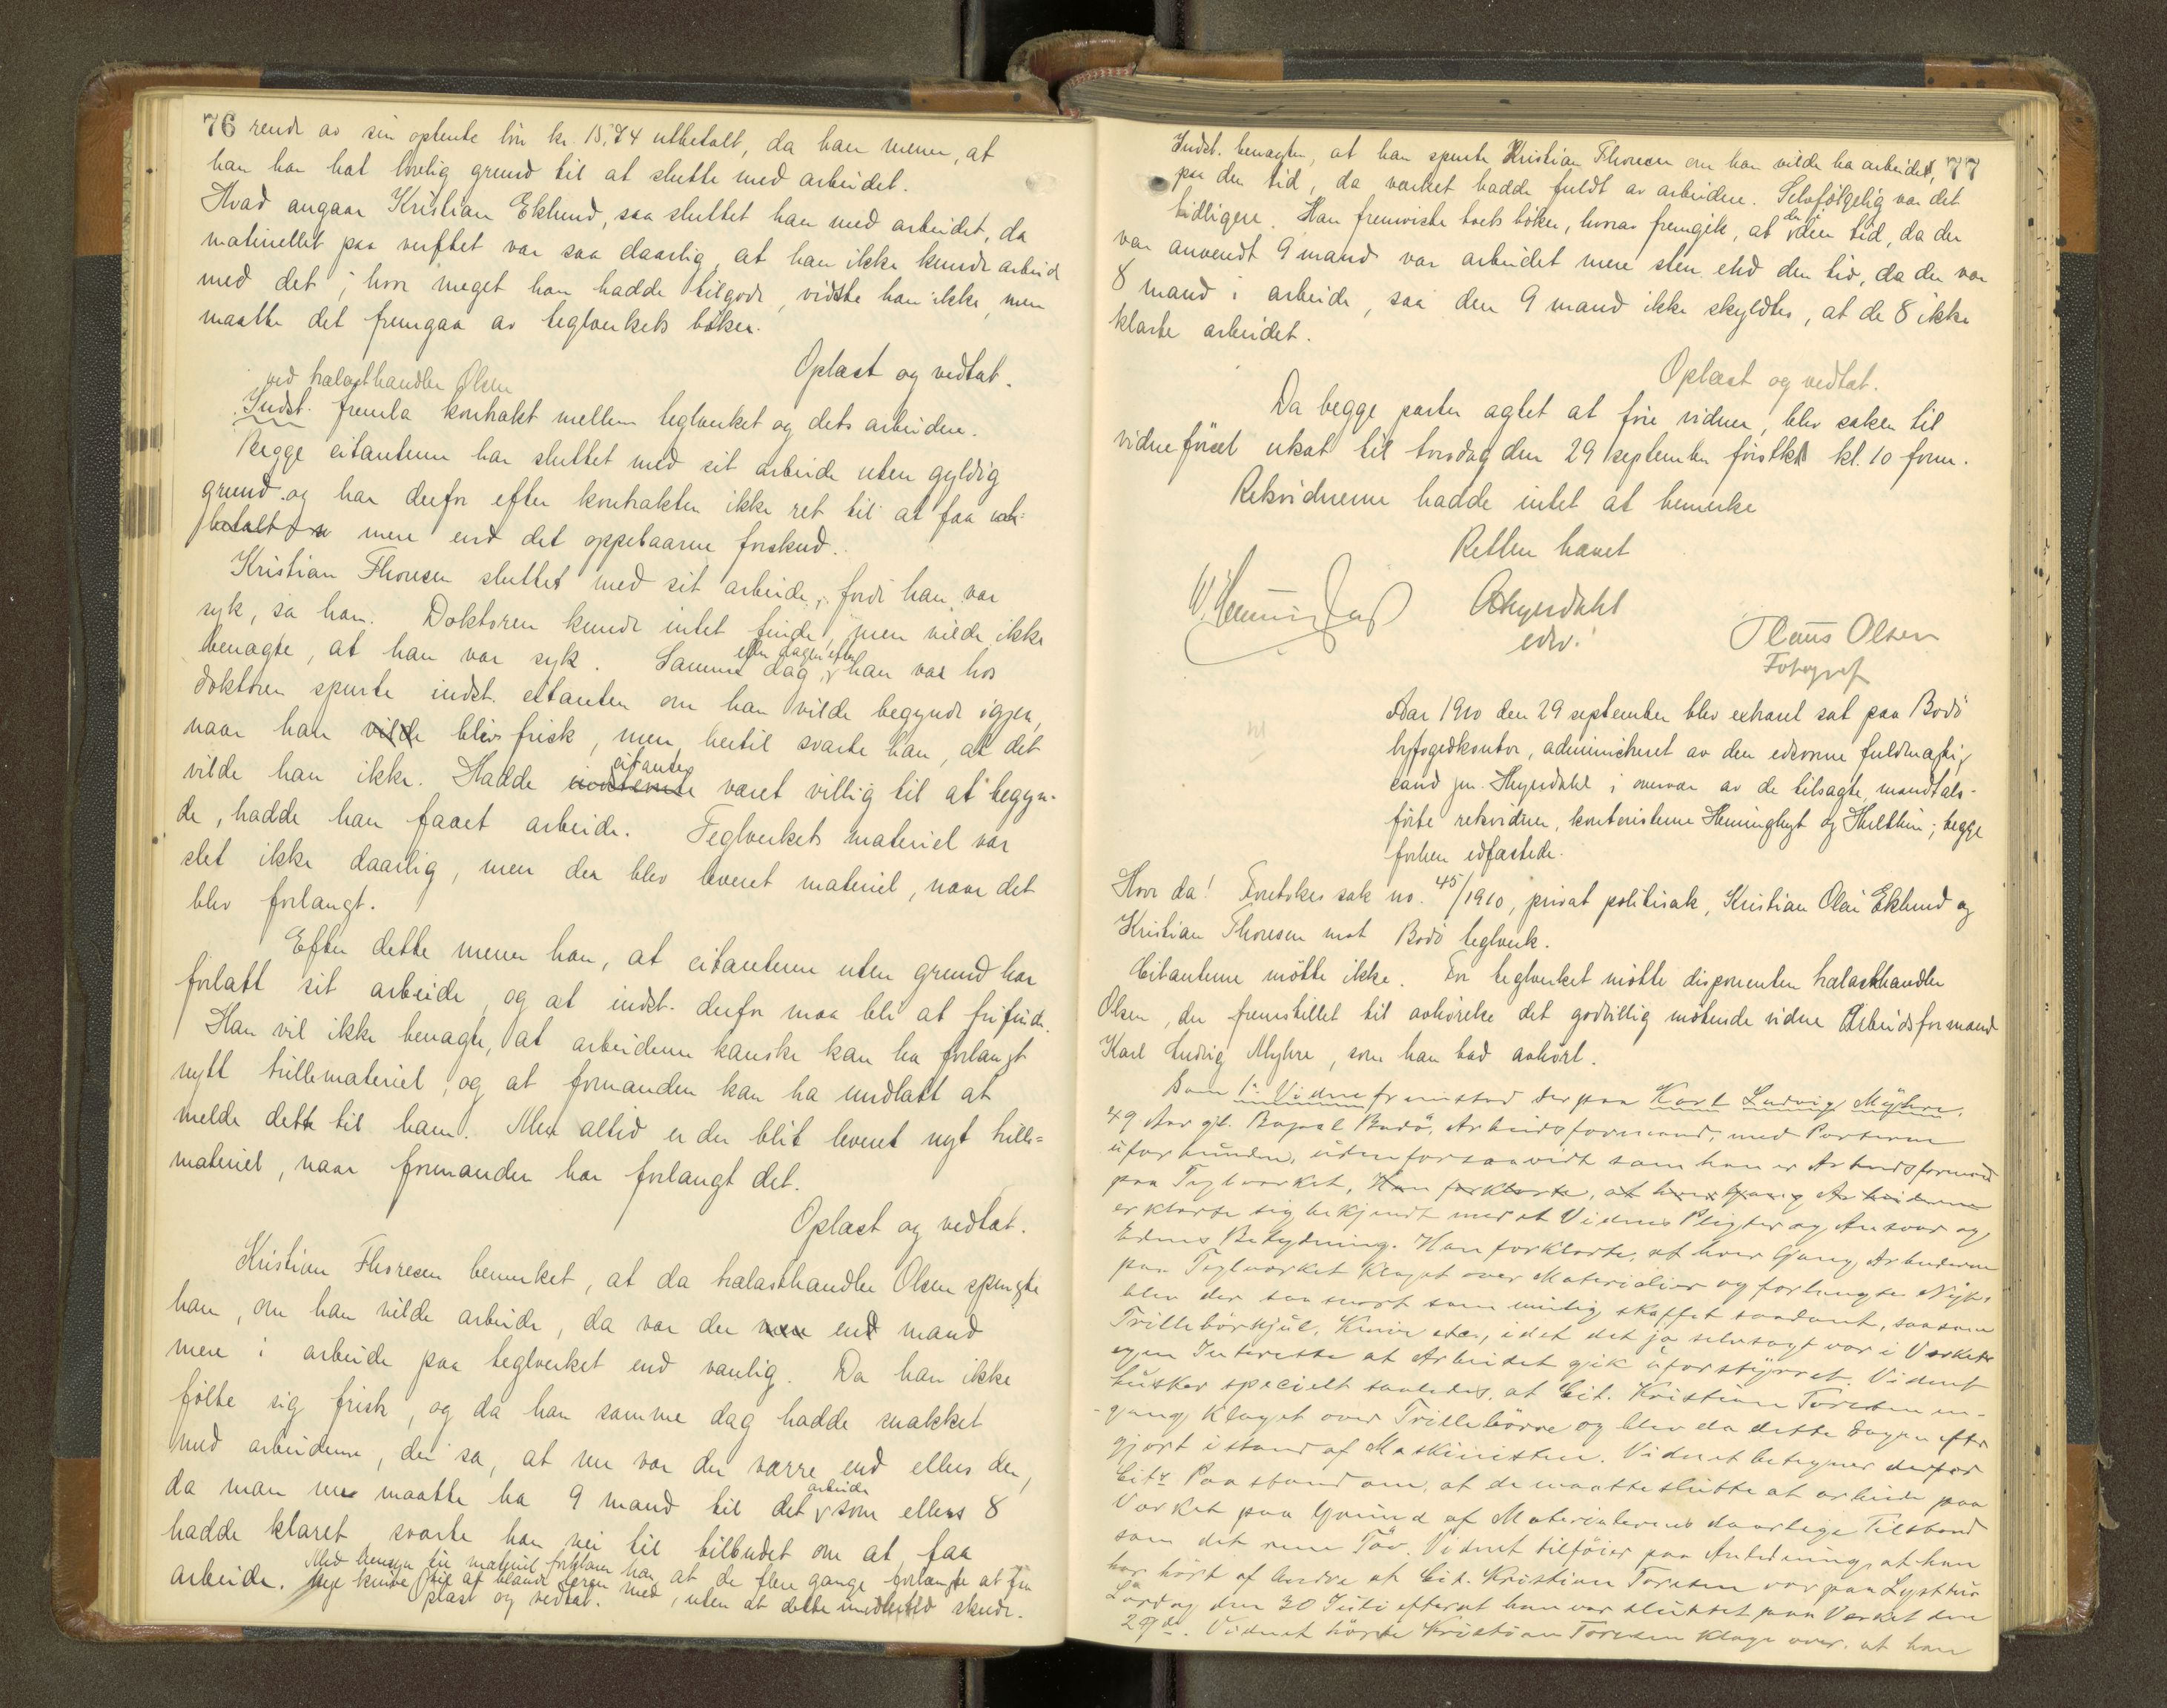 76 rende av sin optente lön kr. 15,74 utbetalt, da han mener, at
han har hat lovlig grund til at slutte med arbeidet.
Hvad angaar Kristian Eklund, saa sluttet han med arbeidet, da
materiellet paa verftet var saa daarlig, at han ikke kunde arbeide
med det; hvor meget han hadde tilgode, vidste han ikke, men
maatte det fremgaa av teglverkets böker.
Oplæst og vedtat.
ved trælasthandler Olsen
Indst. fremla kontrakt mellem teglverket og dets arbeidere.
Begge citanterne har sluttet med sit arbeide uten gyldig
grund og har derfor efter kontrakten ikke ret til at faa
mere end det oppebaarne forskud.
Kristian Thoresen sluttet med sit arbeide, fordi han var
syk, sa han. Doktoren kunde intet finde, men vilde ikke
benægte, at han var syk. Samme dag eller dagen efter han var hos
doktoren spurte indst. citanten om han vilde begynde igjen,
naar han vilde blev frisk, men hertil svarte han, at det
vilde han ikke. Hadde citanten været villig til at begyn-
de, hadde han faaet arbeide. Teglverkets materiel var
slet ikke daarlig, men der blev leveret materiel, naar det
blev forlangt.
Efter dette mener han, at citanterne uten grund har
forlatt sit arbeide, og at indst. derfor maa bli at frifinde.
Han vil ikke benægte, at arbeiderne kanske kan ha forlangt
nytt trillemateriel, og at formanden kan ha undlatt at
melde dette til ham. Men altid er der blit leveret nyt trille=
materiel, naar formanden har forlangt det.
Oplæst og vedtat.
Kristian Thoresen bemerket, at da trælasthandler Olsen spurgte
han, om han vilde arbeide, da var der en mand
mere i arbeide paa teglverket end vanlig. Da han ikke
fölte sig frisk, og da han samme dag hadde snakket
med arbeiderne, der sa, at nu var der værre end ellers der,
da man nu maatte ha 9 mand til det arbeide som ellers 8
hadde klaret, svarte han nei til tilbudet om at faa
arbeide. Med hensyn til materiel forklarer han, at de flere gange forlangte at faa
nye knive til at blande leren med, uten at dette skede.
Oplæst og vedtat.
Indst. benægter, at han spurte Kristian Thoresen om han vilde ha arbeidet, 77
paa den tid, da verket hadde fuldt av arbeidere. Selvfölgelig var det
tidligere. Han fremviste verkets böker, hvorav fremgik, at i den tid, da der
var anvendt 9 mand var arbeidet mere sten end den tid, da der var
8 mand i arbeide, saa den 9 mand ikke skyldtes, at de 8 ikke
klarte arbeidet.
Oplæst og vedtat.
Da begge parter agtet at före vidner, blev saken til
vidneförsel utsat til torsdag den 29 september förstk. kl. 10 form.
Retsvidnerne hadde intet at bemerke
Retten hævet
Heyerdahl
edsv.
Claus Olsen
Fotograf
Aar 1910 den 29 september blev extraret sat paa Bodö
byfogedkontor, administreret av den edsvorne fuldmægtig
cand jur. Heyerdahl i overvær av de tilsagte, mandtals-
förte retsvidner, kontoristerne Henninghyt og Hulthin; begge
forhen edfæstede.
Hvor da! Foretokes sak no. 45/1910, privat politisak, Kristian Olai Eklund og
Kristian Thoresen mot Bodö teglverk.
Citanterne mötte ikke. For teglverket mötte disponenten trælasthandler
Olsen, der fremstillet til avhörelse det godvillig mötende vidne Arbeidsformand
Karl Ludvig Myhre, som han bad avhört.
Som 1. Vidne fremstod derpaa Karl Ludvig Myhre,
49 Aar gl. Bopæl Bodö, Arbeidsformand, med Parterne
uforbunden, udenforsaavidt som han er Arbeidsformand
paa Teglværket, Han forklarte, at hver Gang Arbeiderne
erklærte sig bekjendt med et Vidnes Pligter og Ansvar og
Edens Betydning. Han forklarte, at hver Gang Arbeiderne
paa Teglværket klaget over Materialier og forlangte Nyt,
blev der saa snart som mulig skaffet saadant, saasom
Trillebörhjul, Knive etc., idet det jo selvsagt var i Værkets
egen Interesse at Arbeidet gik uforstyrret. Vidnet
husker specielt saaledes, at Cit. Kristian Toresen en-
gang klaget over Trillebörre og blev da dette Dagen efter
gjort i stand af Maskinisten. Vidnet betegner derfor
Cits Paastand om, at de maatte slutte at arbeide paa
Værket paa Grund af Materialernes daarlige Tilstand
som det rene Töv. Vidnet tilföier paa Anledning, at han
har hört af Andre at Cit. Kristian Toresen var paa Lysttur
Lördag den 30 Juli efterat han var sluttet paa Værket den
29de. Vidnet hörte Kristian Toresen klage over, at han